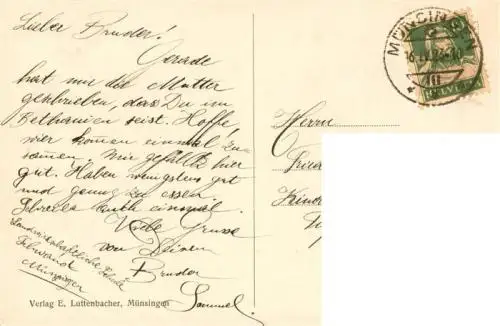 Lieber Bruder!
Gerade
hat mir die Mutter
geschrieben, dass Du im
Bethanien seist. Hoffe
wier können einmal zu-
samen. Mir gefällts hier
gut. Haben wenigstens gut
und genug zu essen.
auch einmal.
Viele Grüsse
von Deinem
Bruder
Samuel.
Landwirtschaftliche Schule
Münsingen
Verlag E. Luttenbacher, Münsingen
MÜNSINGEN
HELVETIA
Herrn